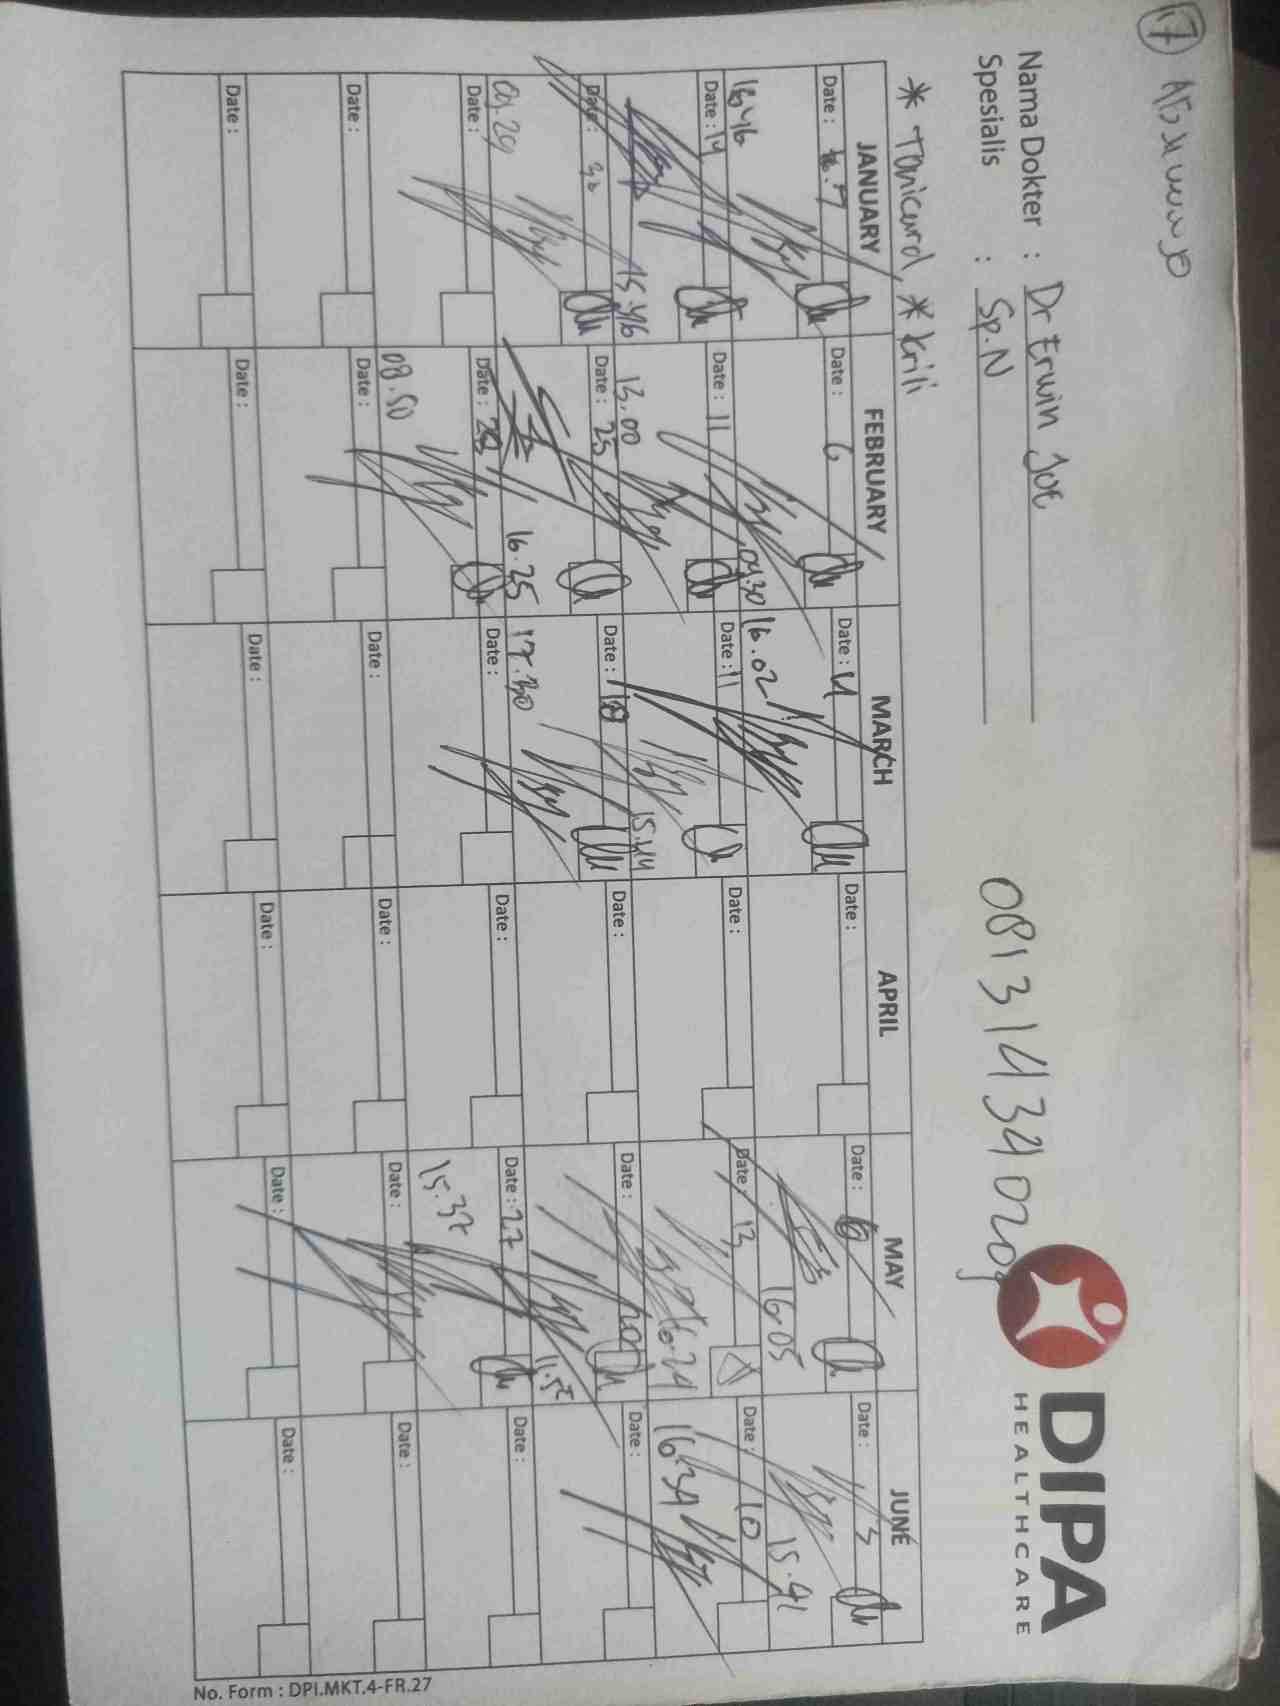 17
DIPA
HEALTHCARE
Nama Dokter : Dr Erwin Joe
Spesialis : Sp.N
081314340209
* Tanicard, * krili
JANUARY FEBRUARY MARCH APRIL MAY JUNE
Date : 7 Date : 6 Date : 4 Date : Date : 6 Date : 3
16.46 09.30 16.02 16.05 15.41
Date : 14 Date : 11 Date : 11 Date : Date : 13 Date : 10
15.46 13.00 15.44 16.24 16.34
Date : 30 Date : 25 Date : 18 Date : Date : 20 Date :
09.29 16.25 17.30 11.55
Date : Date : 28 Date : Date : Date : 27 Date :
08.50 15.37
Date : Date : Date : Date : Date : Date :
Date : Date : Date : Date : Date : Date :
No. Form : DPI.MKT.4-FR.27